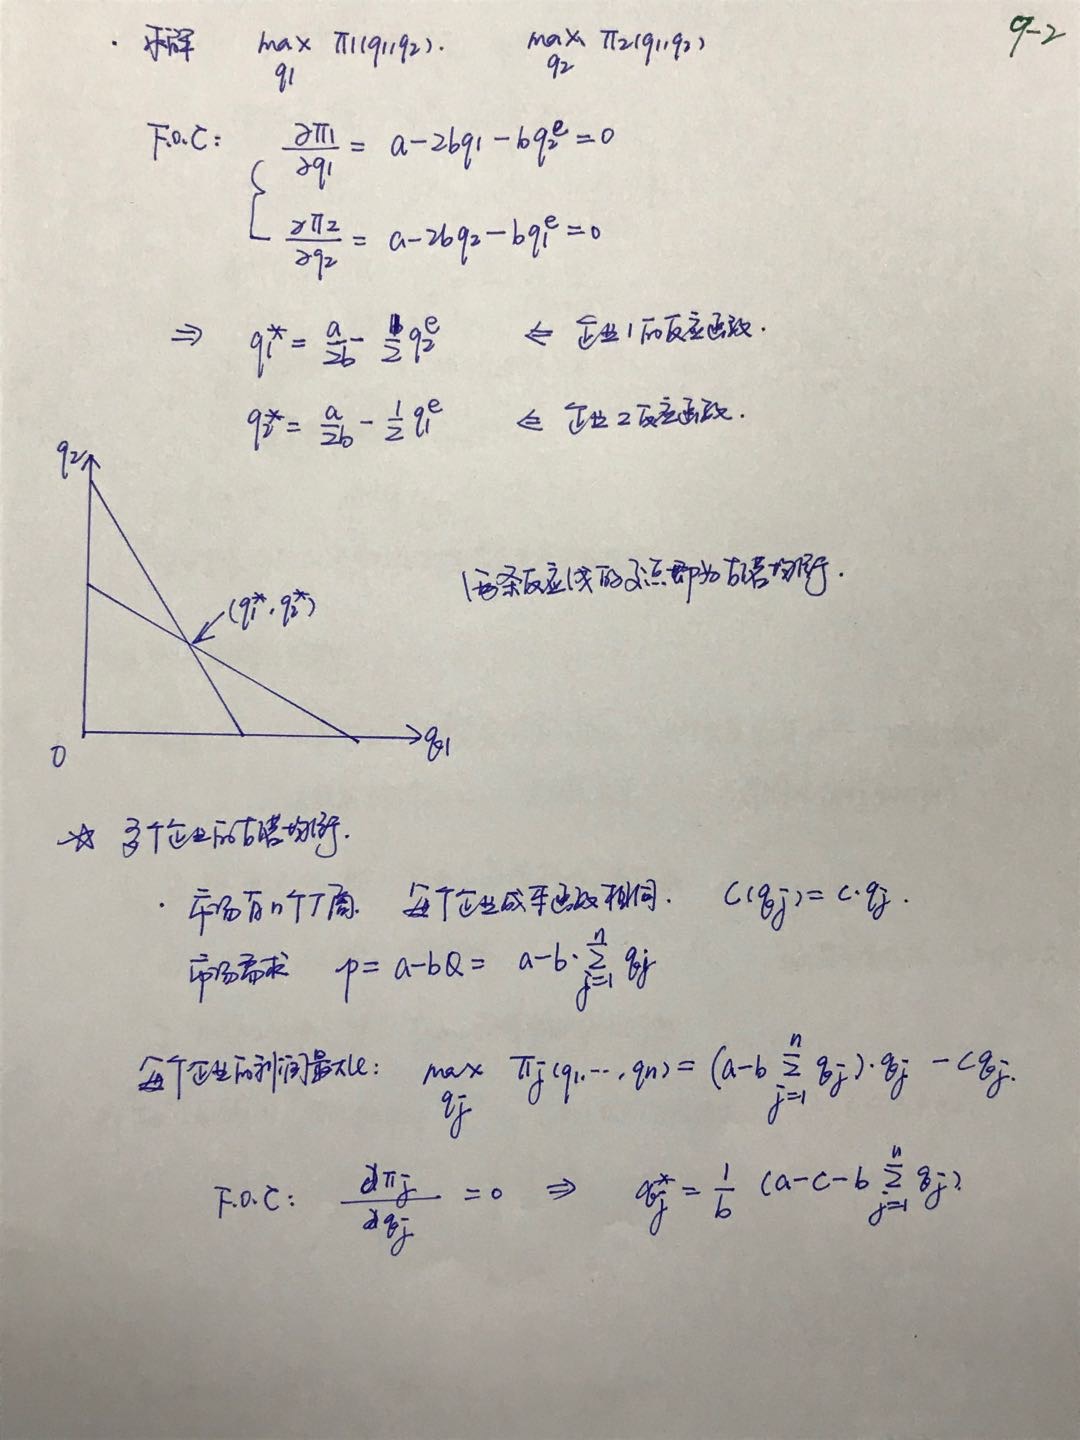 9-2
· 求解 max π1(q1,q2). max π2(q1,q2)
q1 q2
F.O.C: ∂π1/∂q1 = a-2bq1-bq2^e=0
∂π2/∂q2 = a-2bq2-bq1^e=0
⇒ q1*= a/2b - 1/2 q2^e ⇐ 企业1的反应函数.
q2*= a/2b - 1/2 q1^e ⇐ 企业2反应函数.
q2
两条反应线的交点即为古诺均衡.
(q1*, q2*)
0 q1
☆ 多个企业的古诺均衡.
· 市场有n个厂商. 每个企业成本函数相同. C(qj)=c·qj.
市场需求 p=a-bQ= a-b·∑_{j=1}^{n} qj
每个企业的利润最大化: max_{qj} πj(q1,…,qn)=(a-b∑_{j=1}^{n} qj)·qj -cqj.
F.O.C: dπj/dqj =0 ⇒ qj*= 1/b (a-c-b∑_{j=1}^{n} qj).